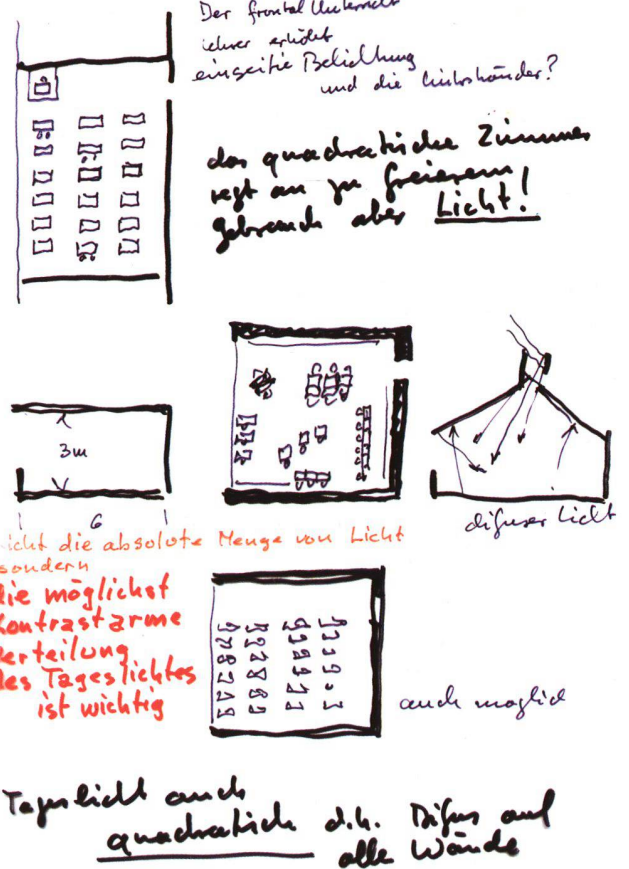 Der frontal Unterricht
lehrer erhöht
einseitie Belichtung
und die linkshänder?
das quadratische Zimmer
regt an zu freierem
Gebrauch aber Licht!
3m
6
difuser licht
icht die absolute Menge von Licht
sondern
die möglichst
Kontrastarme
Verteilung
des Tageslichtes
ist wichtig
auch moglich
Tageslicht auch
quadratisch d.h. Difus auf
alle Wände